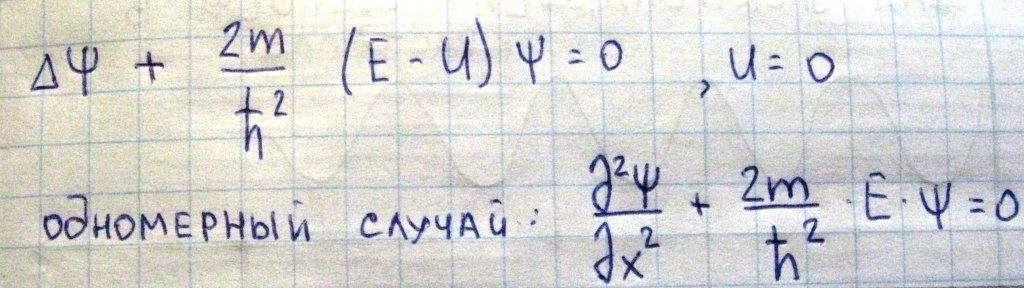 Δψ + 2m/ħ² (E - U) ψ = 0 , U = 0
одномерный случай: ∂²ψ/∂x² + 2m/ħ² · E · ψ = 0